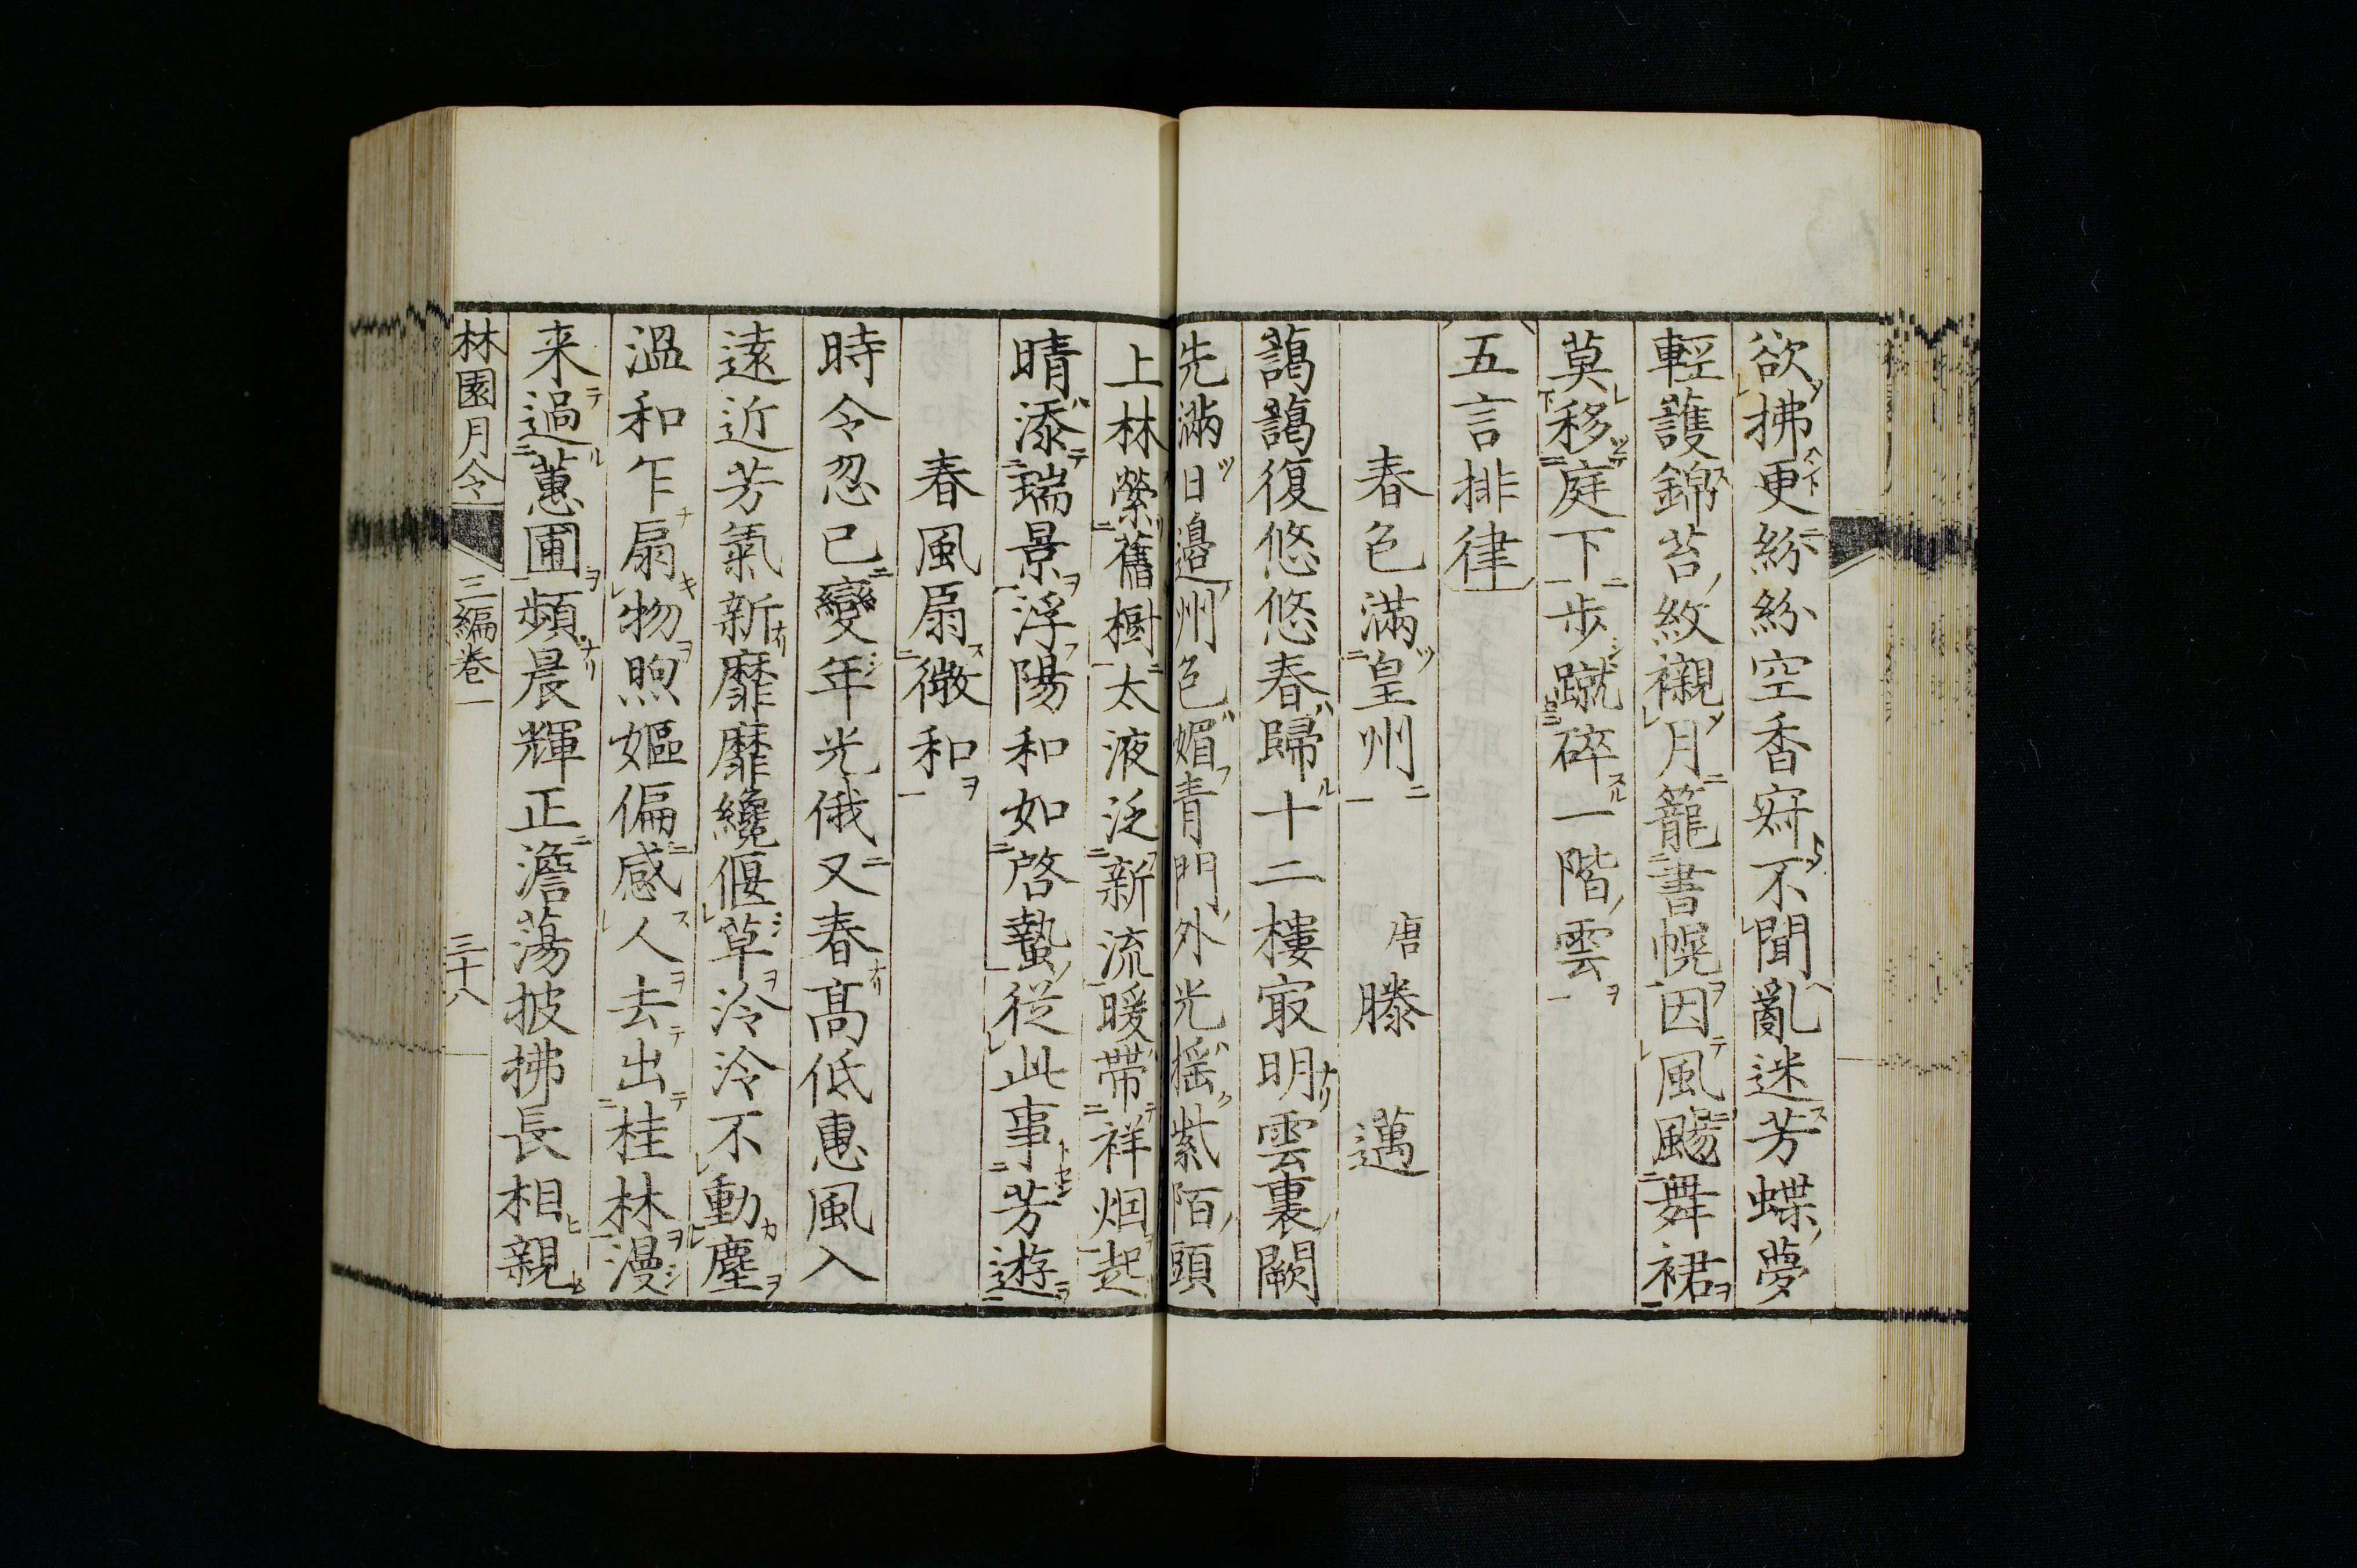 欲拂更紛紛空香窣不聞亂迷芳蝶夢
輕護錦苔紋襯月籠書幌因風颺舞裙
莫移庭下步蹴碎一階雲
五言排律
春色滿皇州 唐 滕邁
藹藹復悠悠春歸十二樓㝡明雲裏闕
先滿日邉州色媚青門外光摇紫陌頭
上林榮舊樹太液泛新流暖帯祥烟起
晴添瑞景浮陽和如啓蟄從此事芳遊
春風扇微和
時令忽已變年光俄又春髙低惠風入
遠近芳氣新靡靡纔偃草泠泠不動塵
温和乍扇物煦嫗偏感人去出桂林漫
来過蕙圃頻晨輝正澹蕩披拂長相親
林園月令 三編卷一 三十八